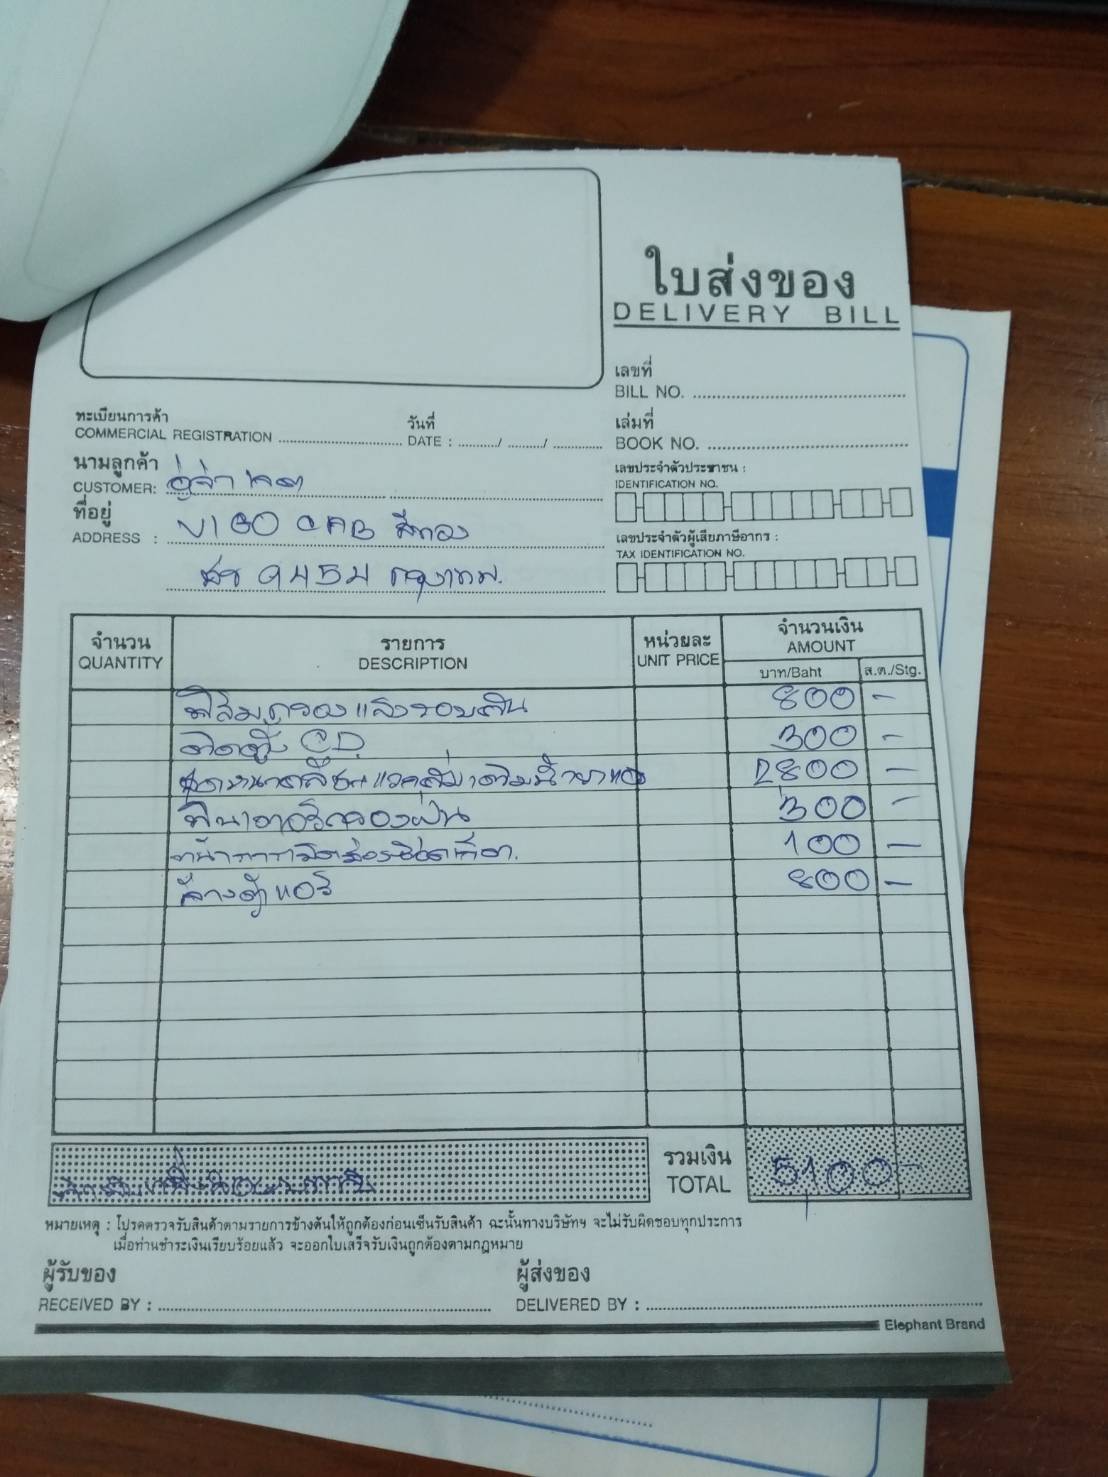 ใบส่งของ
DELIVERY BILL
เลขที่
BILL NO.
ทะเบียนการค้า
COMMERCIAL REGISTRATION
วันที่
DATE : / /
เล่มที่
BOOK NO.
นามลูกค้า
CUSTOMER:
เลขประจำตัวประชาชน :
IDENTIFICATION NO.
ที่อยู่
ADDRESS : VIGO CAB สีทอง
เลขประจำตัวผู้เสียภาษีอากร :
TAX IDENTIFICATION NO.
9454 กรุงเทพ.
จำนวน รายการ หน่วยละ จำนวนเงิน
QUANTITY DESCRIPTION UNIT PRICE AMOUNT
บาท/Baht ส.ต./Stg.
ฟิล์มกรองแสงรอบคัน 800 -
ติดตั้ง CD 300 -
2800 -
ฟิลเตอร์กรองฝุ่น 300 -
100 -
ล้างตู้แอร์ 800 -
รวมเงิน
TOTAL 5,100 -
หมายเหตุ : โปรดตรวจรับสินค้าตามรายการข้างต้นให้ถูกต้องก่อนเซ็นรับสินค้า ฉะนั้นทางบริษัทฯ จะไม่รับผิดชอบทุกประการ
เมื่อท่านชำระเงินเรียบร้อยแล้ว จะออกใบเสร็จรับเงินถูกต้องตามกฎหมาย
ผู้รับของ ผู้ส่งของ
RECEIVED BY : DELIVERED BY :
Elephant Brand